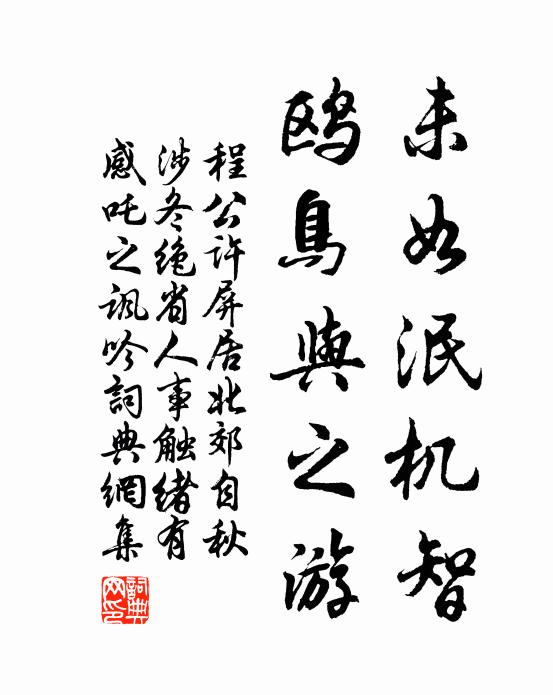 未如泯机智
鸥鳥與之游
程公许屏居北郊自秋
涉冬绝省人事触绪有
感吒之讽吟詞典網集
詞典网印